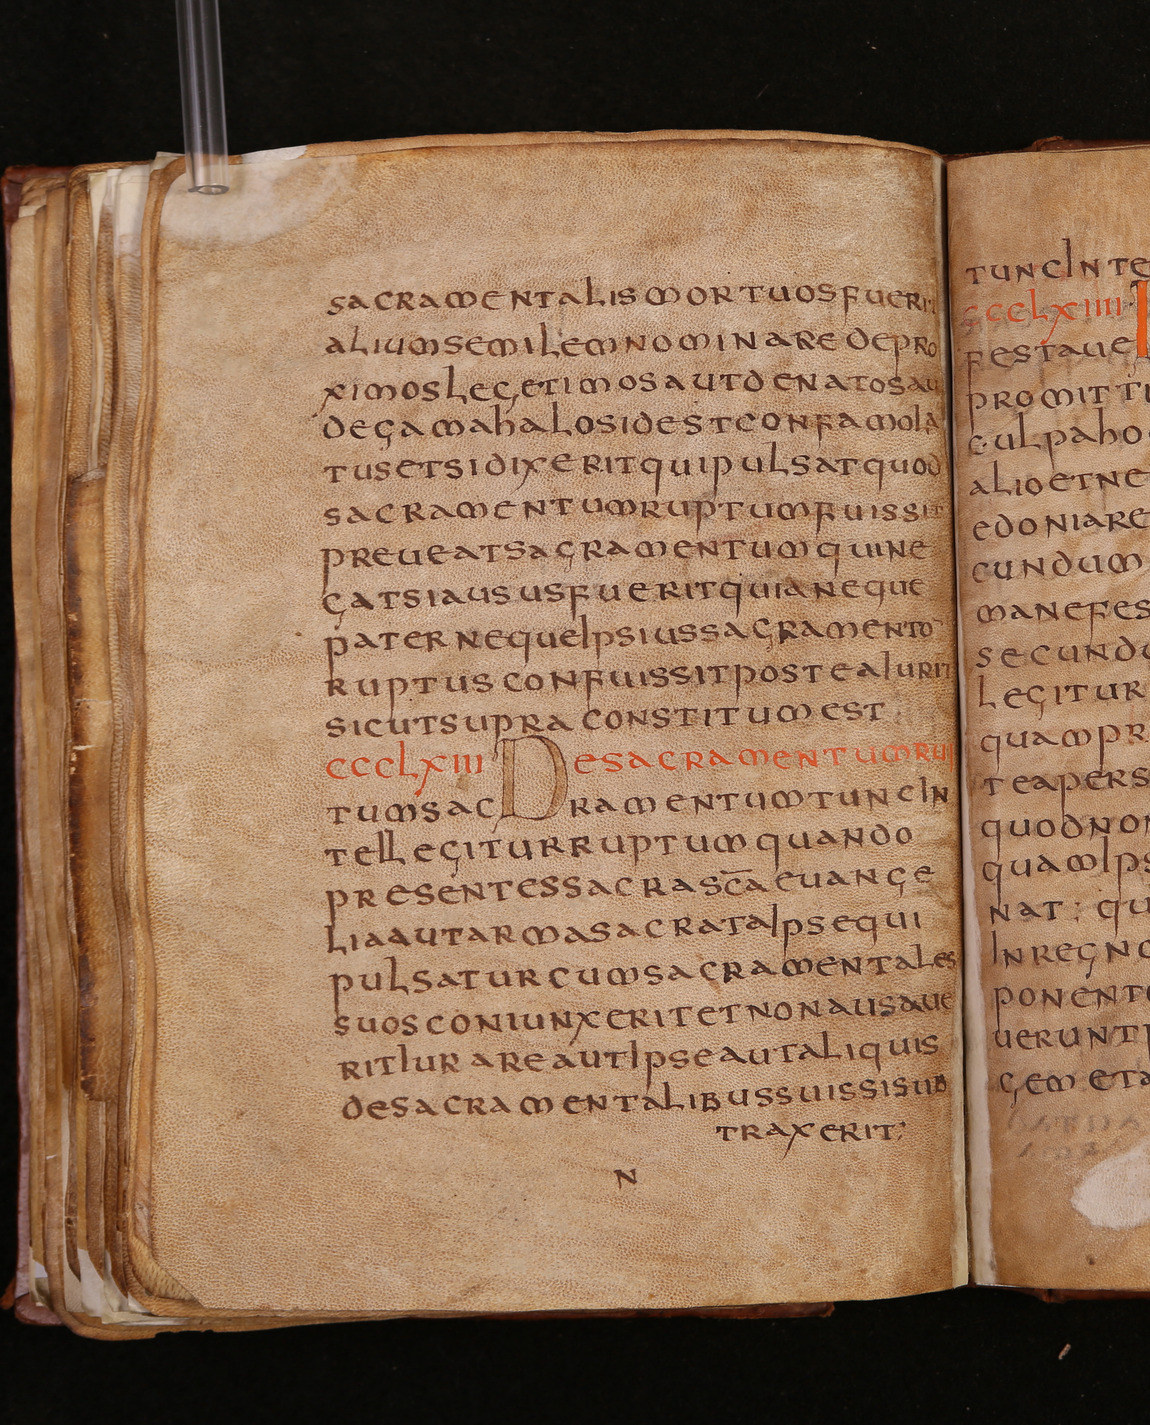 sacramentalis mortuos fuerit
alium semilem nominare de pro
ximos legetimos aut de natos aut
de gamahalos id est confamola
tus et si dixerit qui pulsat quod
sacramentum ruptum fuissit
preueat sacramentum qui ne
gat si ausus fuerit quia neque
pater neque ipsius sacramento
ruptus confuissit postea iurit
sicut supra constitutum est
CCCLXIII De sacramentum ru
tum sacramentum tunc in
tellegitur ruptum quando
presentes sacrasc̄a euange
lia aut arma sacrata ipse qui
pulsatur cum sacramentales
suos coniunxerit et non ausaue
rit iurare aut ipse aut aliquis
de sacramentalibus suis si sub
traxerit;
N
tunc inte
CCCLXIIII
festaue
promitti
culpabo
alio et ne
edoniare
cundum
manefes
secundu
legitur
quam pr
teapers
quod non
quam ips
nat: qu
in regno
ponente
uerunt
gem eta